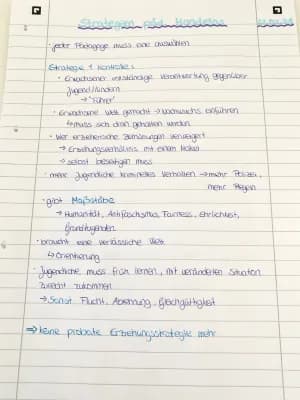 Strategien päd. Handelns
· jeder Pädagoge muss eine auswählen
Strategie 1 Kontrolle:
· Erwachsener vollständige Verantwortung gegenüber
Jugend/Kindern
→ "Führer"
· Erwachsene Welt gemacht → Nachwuchs einführen
↳ muss sich dran gehalten werden
· Wer erzieherische Bemühungen verweigert
→ Erziehungsverhältnis mit einem
→ selbst beseitigen muss
· mehr Jugendliche kriminelles Verhalten → mehr Polizei,
mehr Regeln
· gibt Maßstäbe
→ Humanität, Antifaschismus, Fairness, Ehrlichkeit,
Grundtugenden
· braucht eine verlässliche Welt
↳ Orientierung
· Jugendliche muss früh lernen, mit veränderten Situation
zurecht zukommen
→ Sonst Flucht, Ablehnung, Gleichgültigkeit
⇒ keine probate Erziehungsstrategie mehr